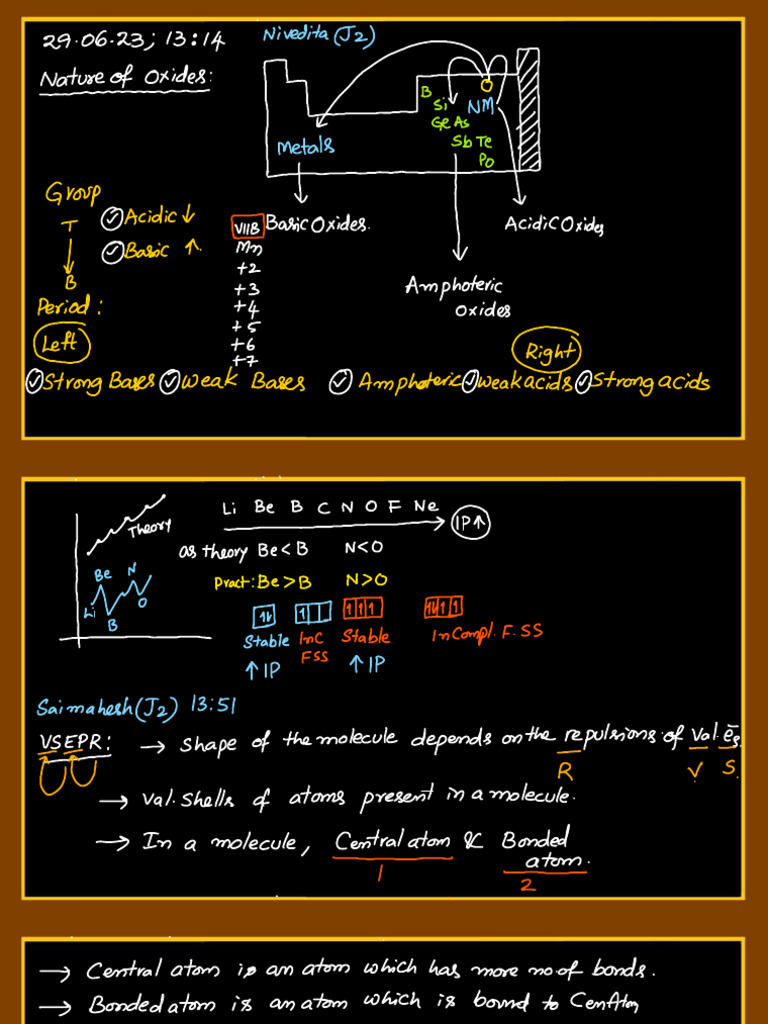 29.06.23; 13:14
Nivedita (J2)
Nature of Oxides:
B
Si
Ge As
Sb Te
Po
O
NM
Metals
Group
T
B
Acidic ↓
Basic ↑
VIIB
Mn
+2
+3
+4
+5
+6
+7
Basic Oxides.
Amphoteric
oxides
Acidic Oxides
Period:
Left
Right
Strong Bases Weak Bases Amphoteric weak acids Strong acids
Theory
Be N
Li B O
Li Be B C N O F Ne IP↑
as theory Be < B N < O
Pract: Be > B N > O
Stable Inc Stable InCompl. F. SS
FSS
↑ IP ↑ IP
Saimahesh (J2) 13:51
VSEPR: → Shape of the molecule depends on the repulsions of val. ēs.
R V S.
→ Val. Shells of atoms present in a molecule.
→ In a molecule, Central atom & Bonded
atom.
1 2
→ Central atom is an atom which has more no of bonds.
→ Bonded atom is an atom which is bound to Cen Atom